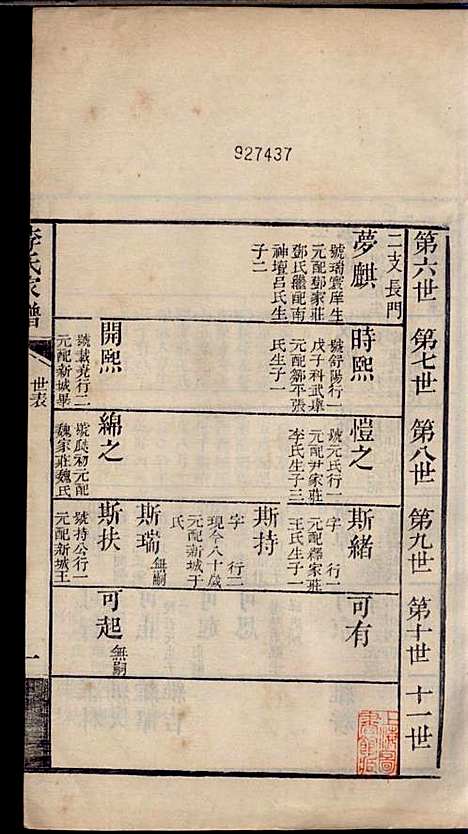 927437
第六世 第七世 第八世 第九世 第十世 十一世
二支長門
夢麒
號瑞寰庠生
元配鄧家莊
鄧氏繼配南
神壇呂氏生
子二
時熙
號舒陽行一
戊子科武舉
元配鄒平張
氏生子一
愷之
號元氏行一
元配尹家莊
李氏生子三
斯緒
字 行一
元配釋家莊
王氏生子一
可有
斯持
字 行二
現今八十歲
元配新城于
氏
斯瑞
無嗣
開熙
號載堯行二
元配新城畢
綿之
號瓞初元配
魏家莊魏氏
斯扶
號持公行一
元配新城王
可起
無嗣
李氏家譜
世表
一
上海圖
書館藏